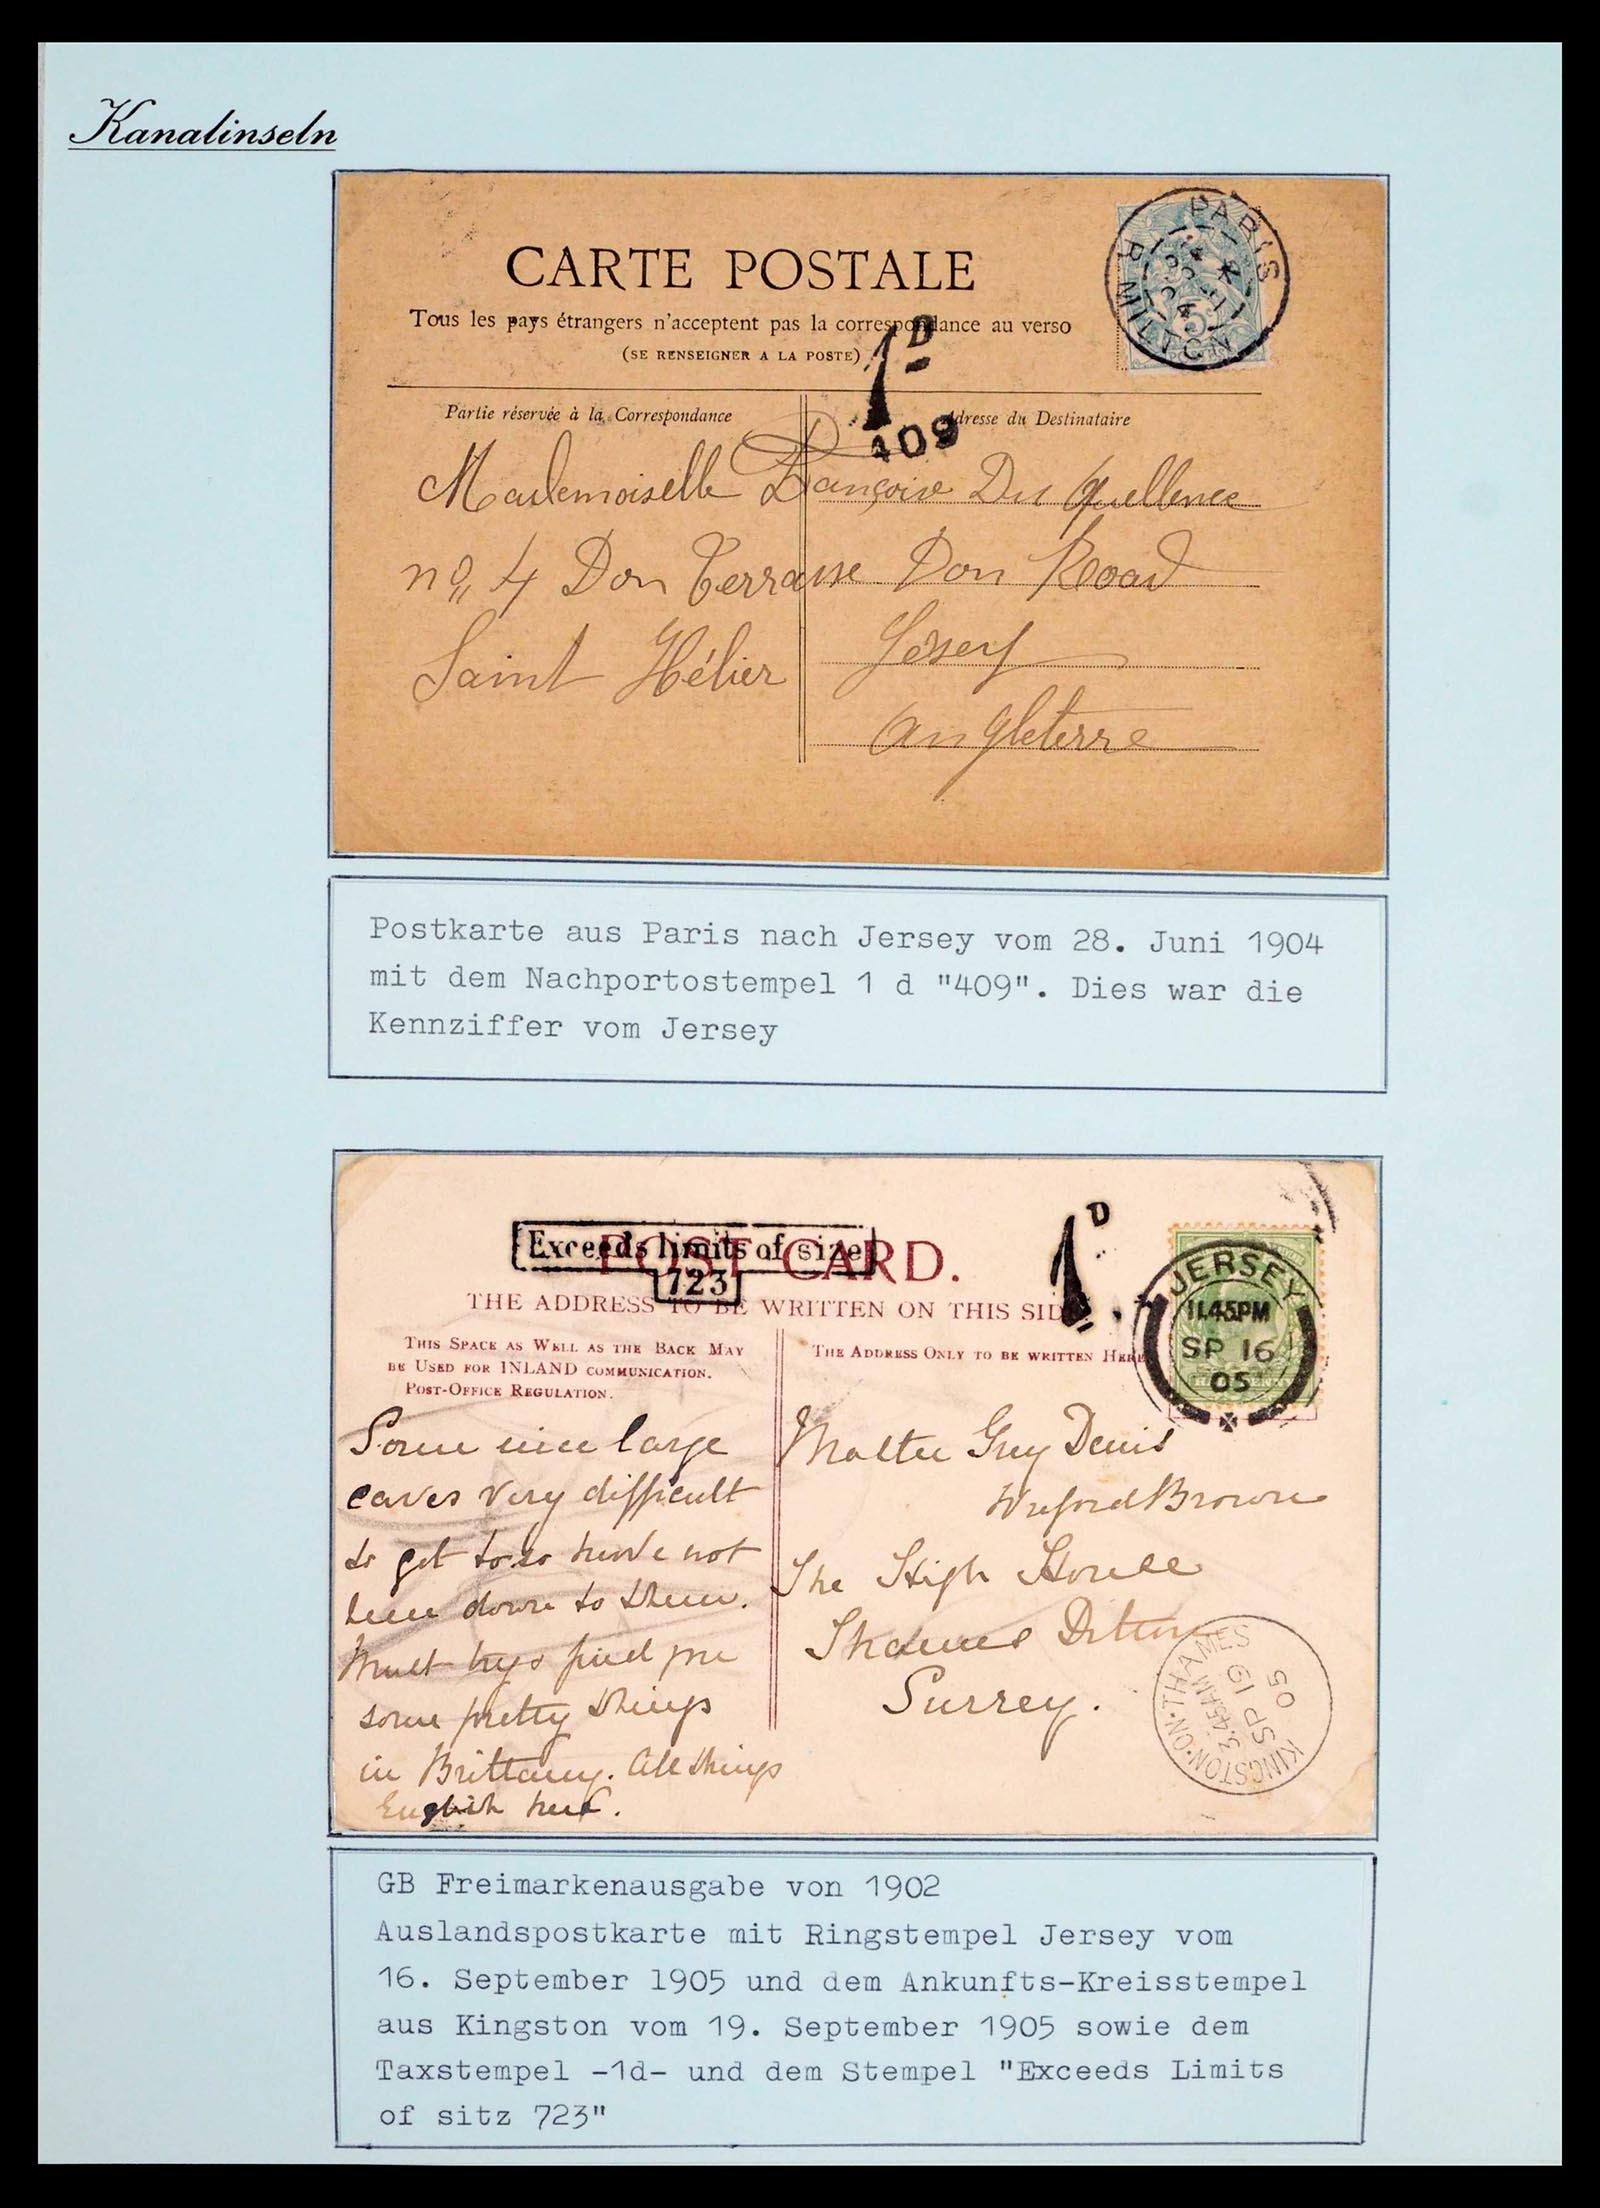 Kanalinseln
CARTE POSTALE
Tous les pays étrangers n'acceptent pas la correspondance au verso
(SE RENSEIGNER A LA POSTE)
PARIS
R. MILTON
5
1D
409
Partie réservée à la Correspondance
Adresse du Destinataire
Mademoiselle Françoise Du Quellenec
no 4 Don Terrasse Don Road
Saint Hélier Jersey
Angleterre
Postkarte aus Paris nach Jersey vom 28. Juni 1904
mit dem Nachportostempel 1 d "409". Dies war die
Kennziffer vom Jersey
Exceeds limits of size
723
POST CARD.
THE ADDRESS TO BE WRITTEN ON THIS SIDE
1D
JERSEY
11.45PM
SP 16
05
THIS SPACE AS WELL AS THE BACK MAY
BE USED FOR INLAND COMMUNICATION.
POST-OFFICE REGULATION.
THE ADDRESS ONLY TO BE WRITTEN HERE
Some nice large
caves very difficult
to get to so have not
been down to them.
Must try & find you
some pretty things
in Brittany. All things
English here.
Master Guy Denis
Wreford Brown
The High House
Thames Ditton
Surrey.
KINGSTON-ON-THAMES
3.45AM
SP 19
05
GB Freimarkenausgabe von 1902
Auslandspostkarte mit Ringstempel Jersey vom
16. September 1905 und dem Ankunfts-Kreisstempel
aus Kingston vom 19. September 1905 sowie dem
Taxstempel -1d- und dem Stempel "Exceeds Limits
of sitz 723"